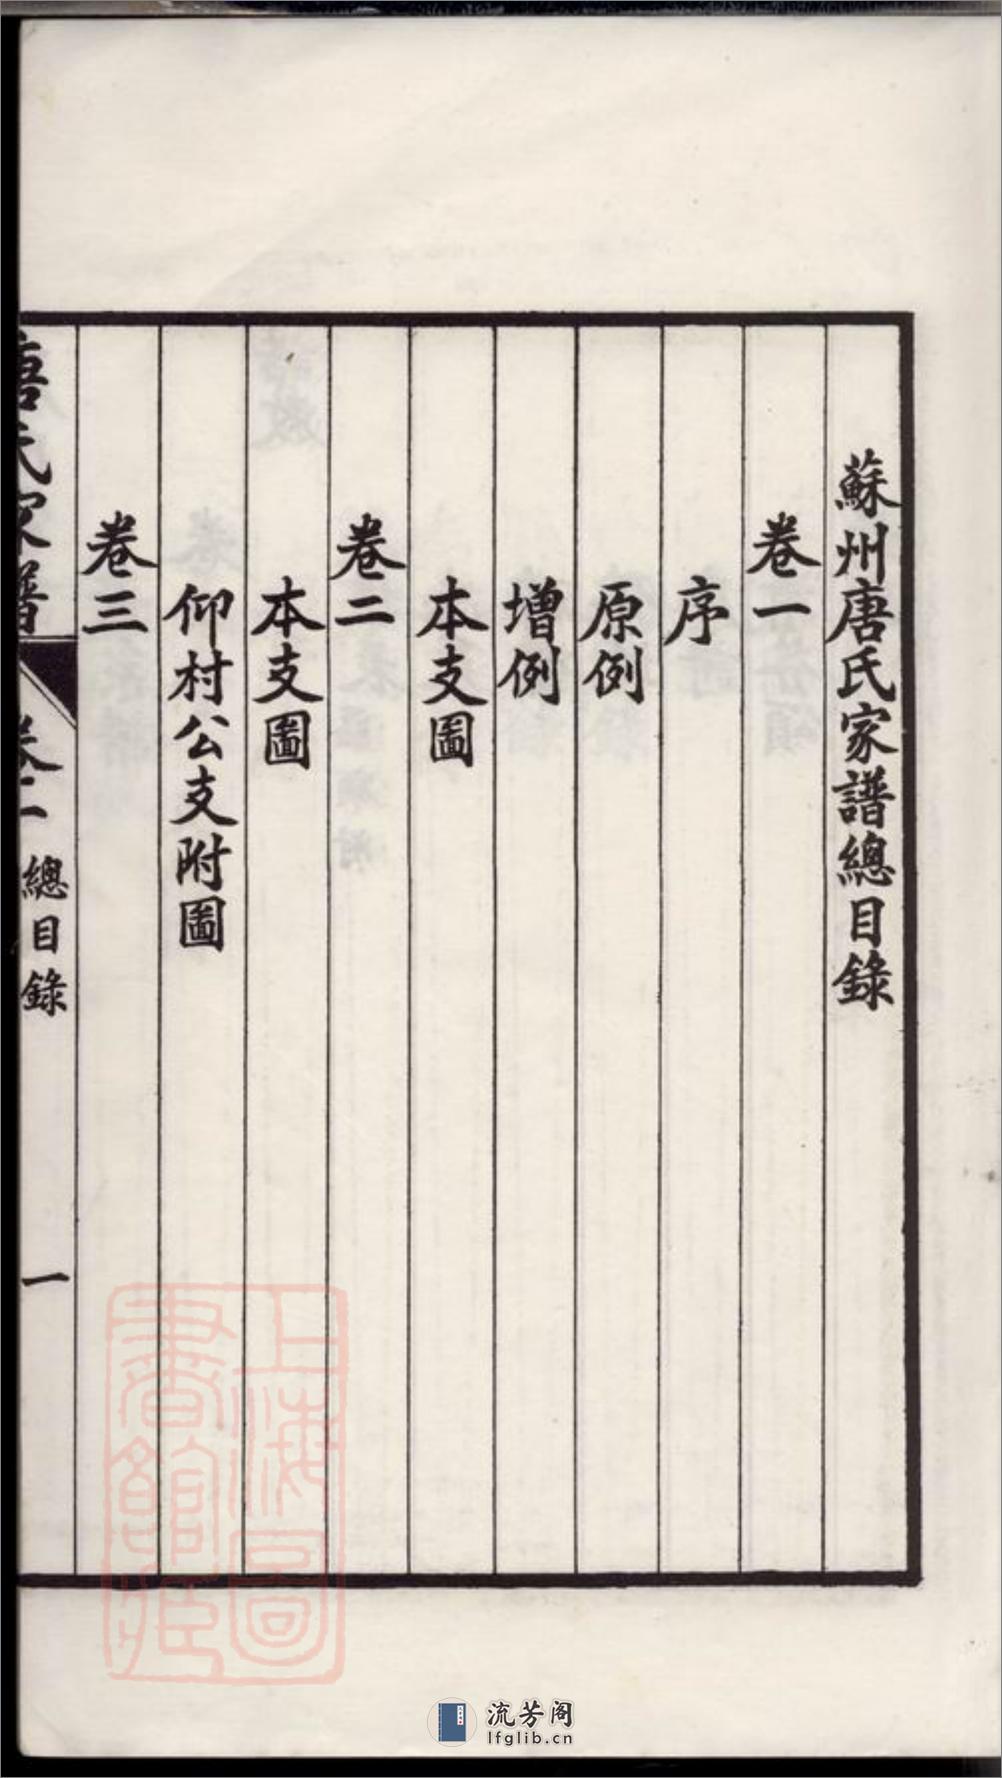 蘇州唐氏家譜總目錄
卷一
序
原例
增例
本支圖
卷二
本支圖
仰村公支附圖
卷三
唐氏家譜 卷一 總目錄 一
上海圖書館藏
流芳阁
lfglib.cn